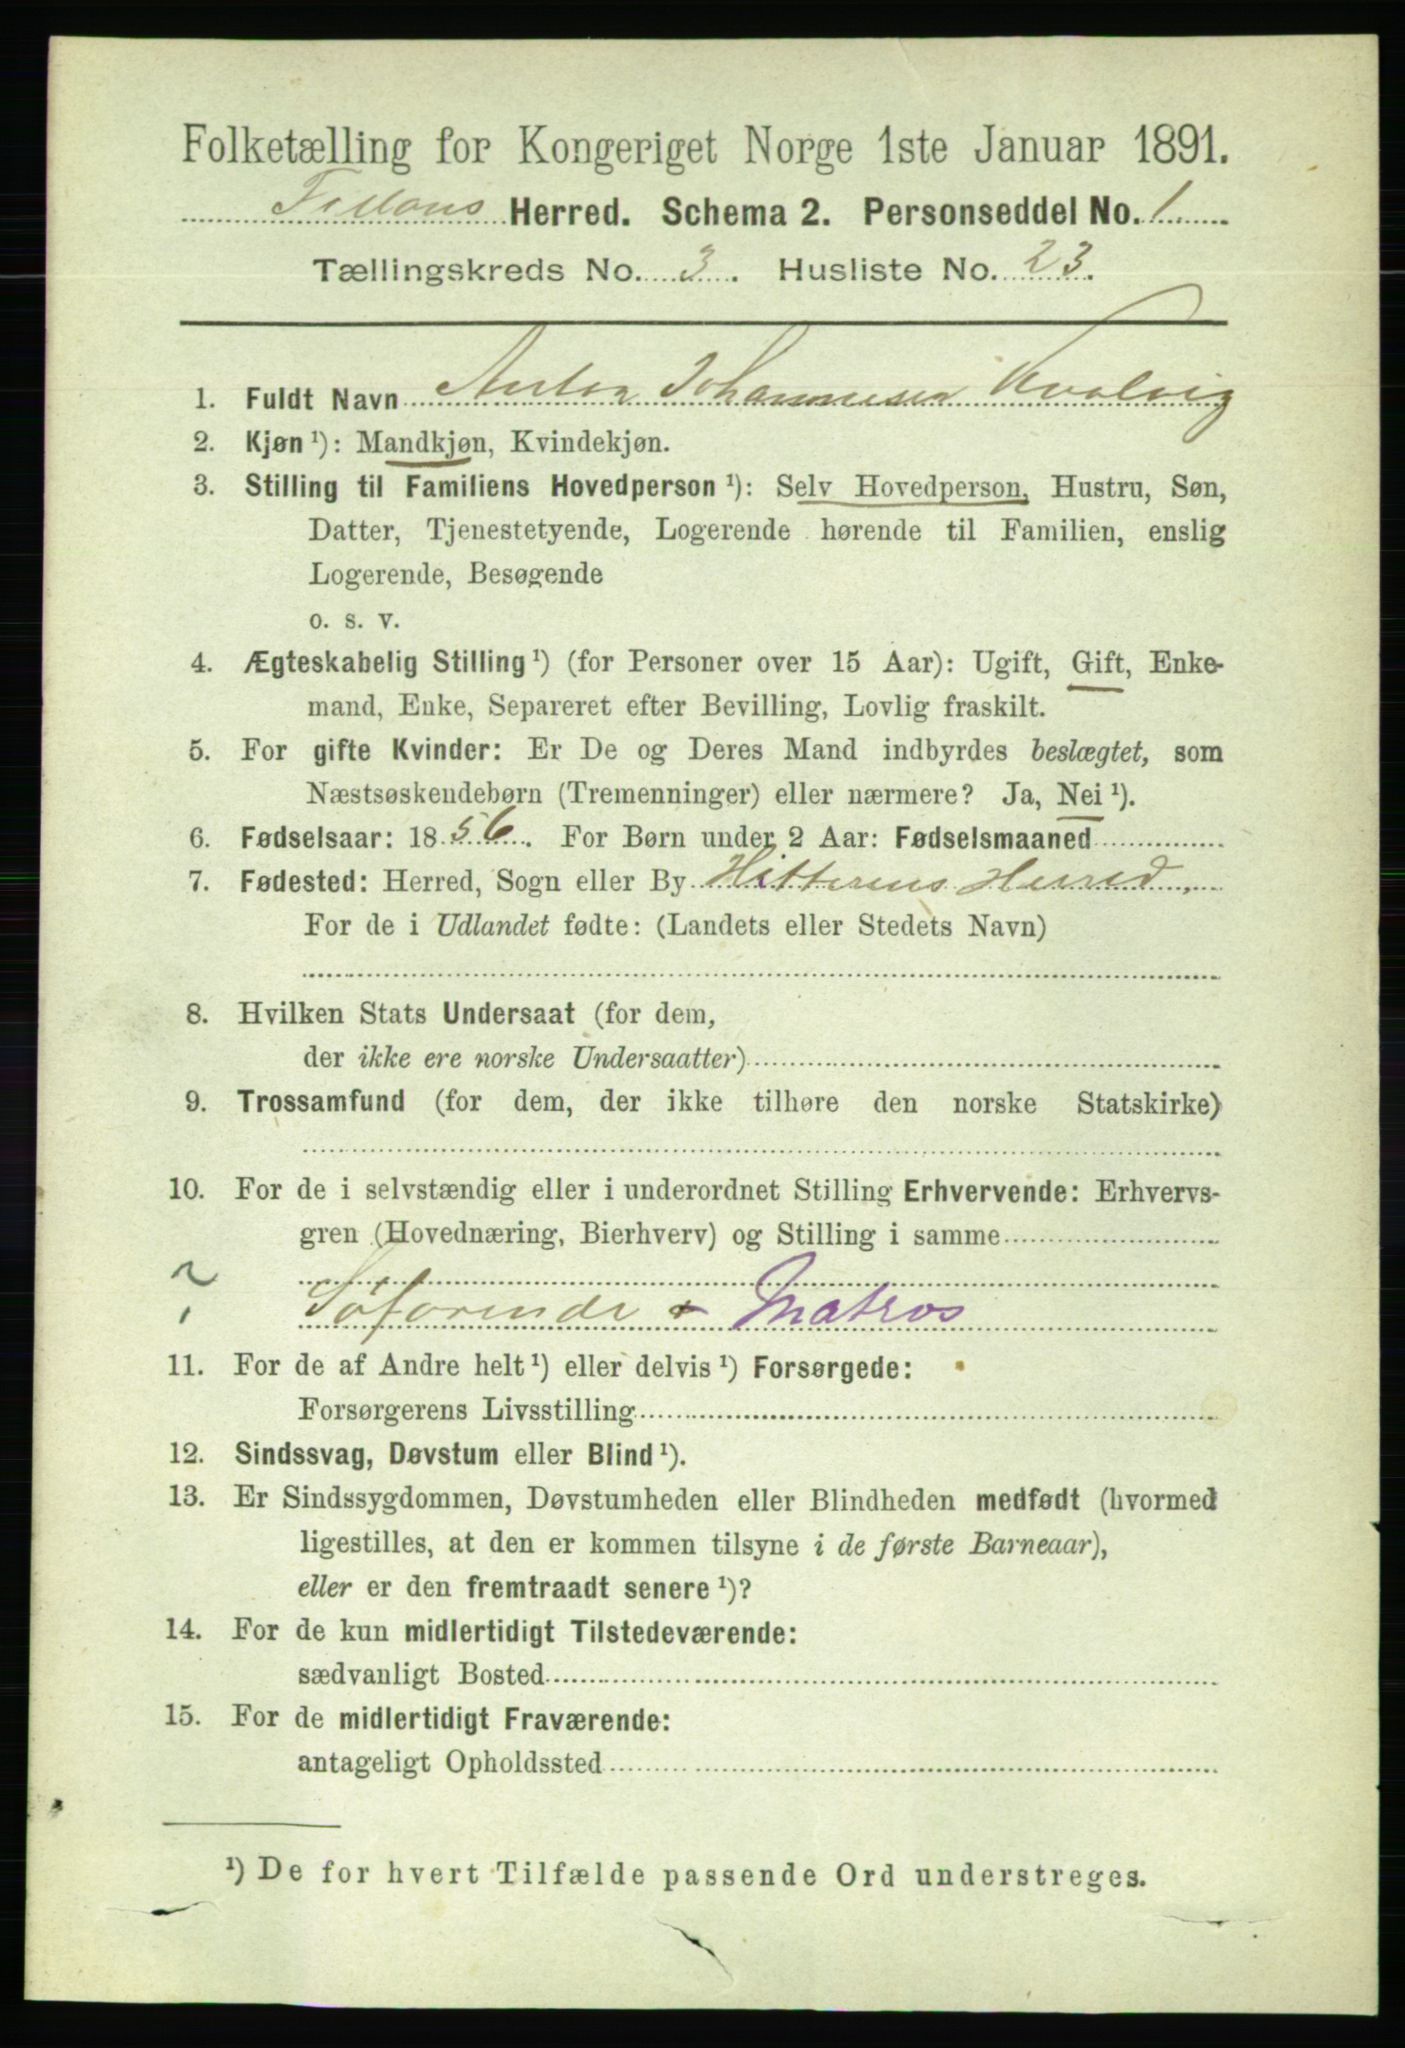 Folketælling for Kongeriget Norge 1ste Januar 1891.
Fillans Herred. Schema 2. Personseddel No. 1
Tællingskreds No. 3. Husliste No. 23.
1. Fuldt Navn Anton Johannesen Kvalvig
2. Kjøn ¹): Mandkjøn, Kvindekjøn.
3. Stilling til Familiens Hovedperson ¹): Selv Hovedperson, Hustru, Søn,
Datter, Tjenestetyende, Logerende hørende til Familien, enslig
Logerende, Besøgende
o. s. v.
4. Ægteskabelig Stilling ¹) (for Personer over 15 Aar): Ugift, Gift, Enke-
mand, Enke, Separeret efter Bevilling, Lovlig fraskilt.
5. For gifte Kvinder: Er De og Deres Mand indbyrdes beslægtet, som
Næstsøskendebørn (Tremenninger) eller nærmere? Ja, Nei ¹).
6. Fødselsaar: 1856. For Børn under 2 Aar: Fødselsmaaned
7. Fødested: Herred, Sogn eller By Hitterens Herred,
For de i Udlandet fødte: (Landets eller Stedets Navn)
8. Hvilken Stats Undersaat (for dem,
der ikke ere norske Undersaatter)
9. Trossamfund (for dem, der ikke tilhøre den norske Statskirke)
10. For de i selvstændig eller i underordnet Stilling Erhvervende: Erhvervs-
gren (Hovednæring, Bierhverv) og Stilling i samme
Søfarende + Matros
11. For de af Andre helt ¹) eller delvis ¹) Forsørgede:
Forsørgerens Livsstilling
12. Sindssvag, Døvstum eller Blind ¹).
13. Er Sindssygdommen, Døvstumheden eller Blindheden medfødt (hvormed
ligestilles, at den er kommen tilsyne i de første Barneaar),
eller er den fremtraadt senere ¹)?
14. For de kun midlertidigt Tilstedeværende:
sædvanligt Bosted
15. For de midlertidigt Fraværende:
antageligt Opholdssted
¹) De for hvert Tilfælde passende Ord understreges.